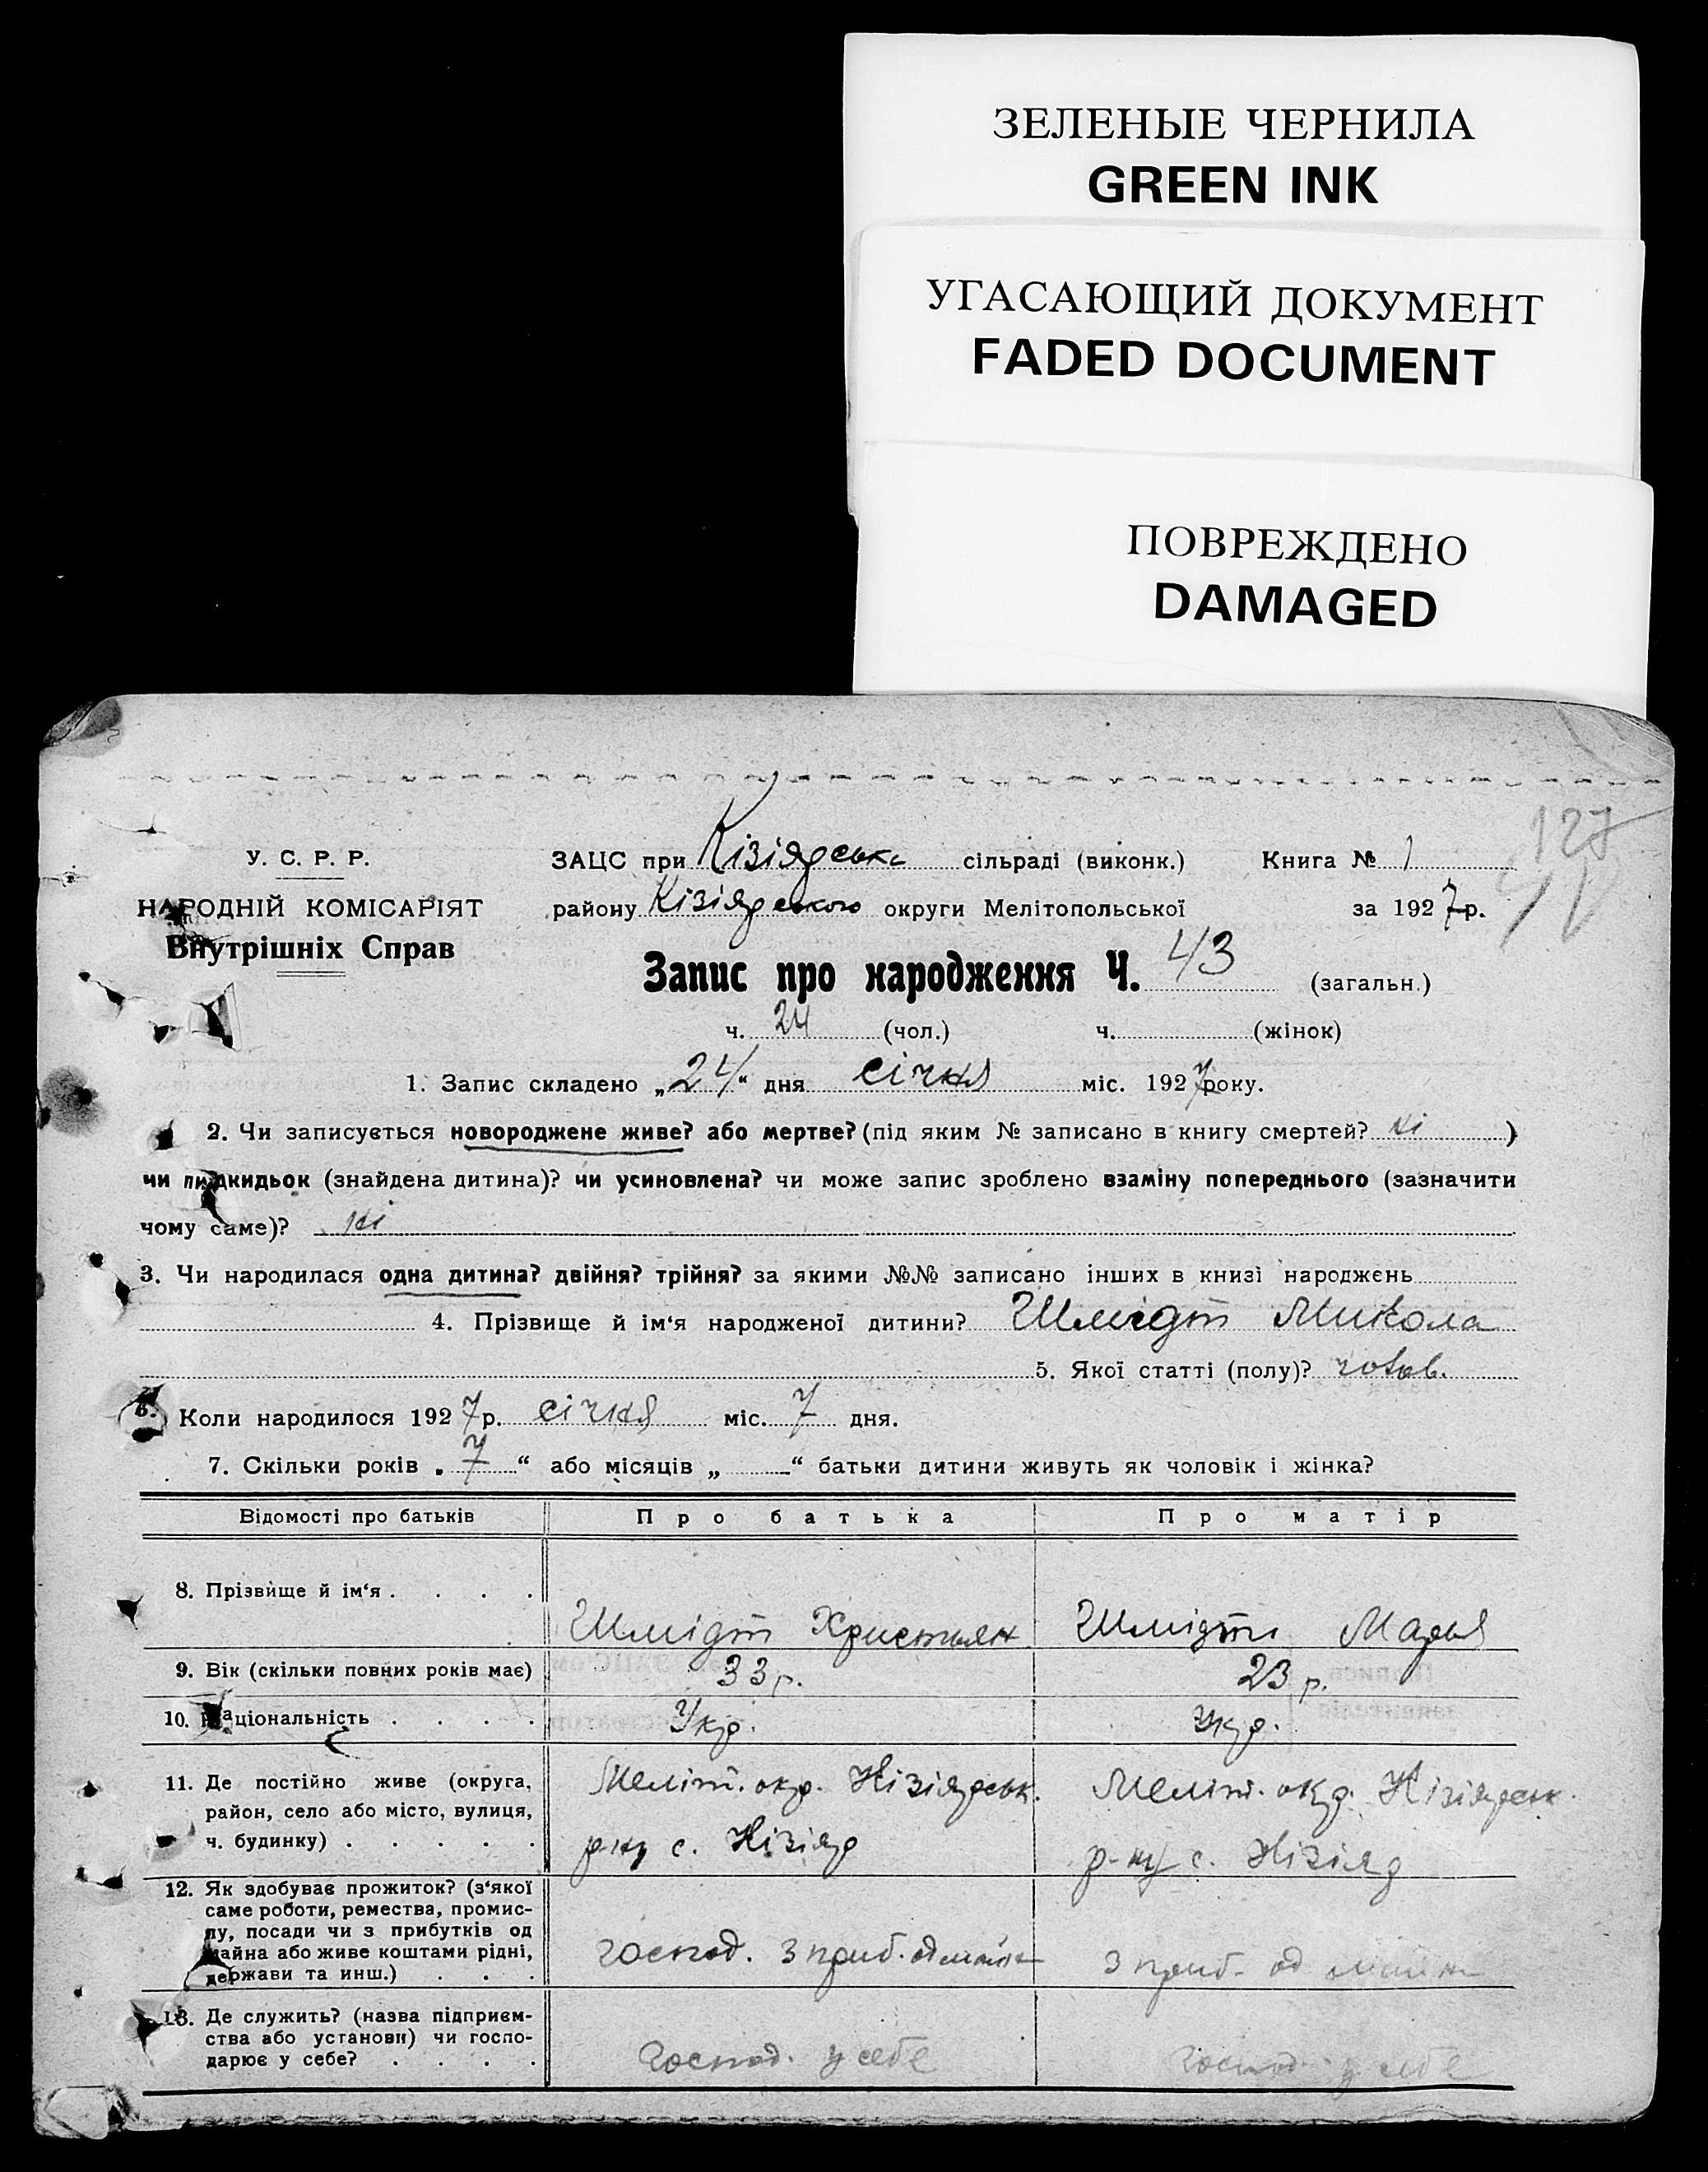 ЗЕЛЕНЫЕ ЧЕРНИЛА
GREEN INK
УГАСАЮЩИЙ ДОКУМЕНТ
FADED DOCUMENT
ПОВРЕЖДЕНО
DAMAGED
127
У. С. Р. Р.
НАРОДНІЙ КОМІСАРІЯТ
Внутрішніх Справ
ЗАЦС при Кізіярська сільраді (виконк.) Книга № 1
району Кізіярського округи Мелітопольської за 1927 р.
Запис про народження Ч. 43 (загальн.)
ч. 24 (чол.) ч. (жінок)
1. Запис складено „24“ дня січня міс. 1927 року.
2. Чи записується новороджене живе? або мертве? (під яким № записано в книгу смертей? ні )
чи підкидьок (знайдена дитина)? чи усиновлена? чи може запис зроблено взаміну попереднього (зазначити
чому саме)? ні
3. Чи народилася одна дитина? двійня? трійня? за якими №№ записано інших в книзі народжень
4. Прізвище й ім‘я народженої дитини? Шмідт Микола
5. Якої статті (полу)? чолов.
6. Коли народилося 1927 р. січня міс. 7 дня.
7. Скільки років „7“ або місяців „ “ батьки дитини живуть як чоловік і жінка?
Відомості про батьків Про батька Про матір
8. Прізвище й ім‘я . . . . Шмідт Христьян Шмідт Марья
9. Вік (скільки повних років має) 33 р. 23 р.
10. Національність . . . . Укр. Укр.
11. Де постійно живе (округа,
район, село або місто, вулиця,
ч. будинку) . . . . .
Меліт. окр. Кізіярськ.
р-ну с. Кізіяр
Меліт. окр. Кізіярськ.
р-ну с. Кізіяр
12. Як здобуває прожиток? (з‘якої
саме роботи, ремества, промис-
лу, посади чи з прибутків од
майна або живе коштами рідні,
держави та инш.) . . .
господ. з приб. од майна
з приб. од майна
13. Де служить? (назва підприєм-
ства або установи) чи госпо-
дарює у себе? . . . .
Господ. у себе
Господ. у себе